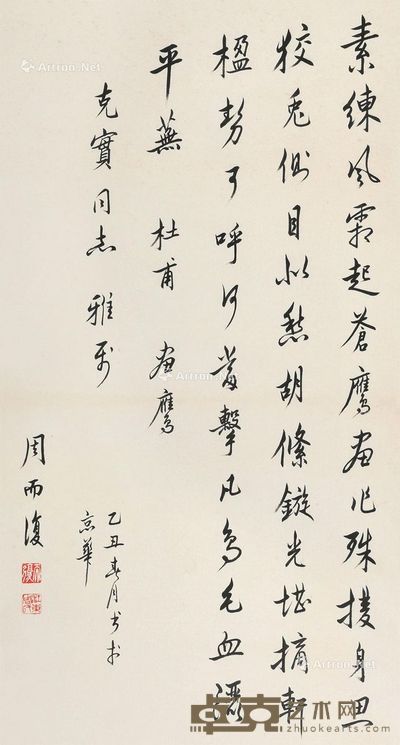 素練風霜起蒼鷹画作殊㩳身思
狡兔側目似愁胡絛鏇光堪摘軒
楹勢可呼何當擊凡鳥毛血灑
平蕪 杜甫 画鷹
克實同志 雅属
乙丑春月书於
京華
周而復
Artron.Net
卓克艺术网
zhuokearts.com